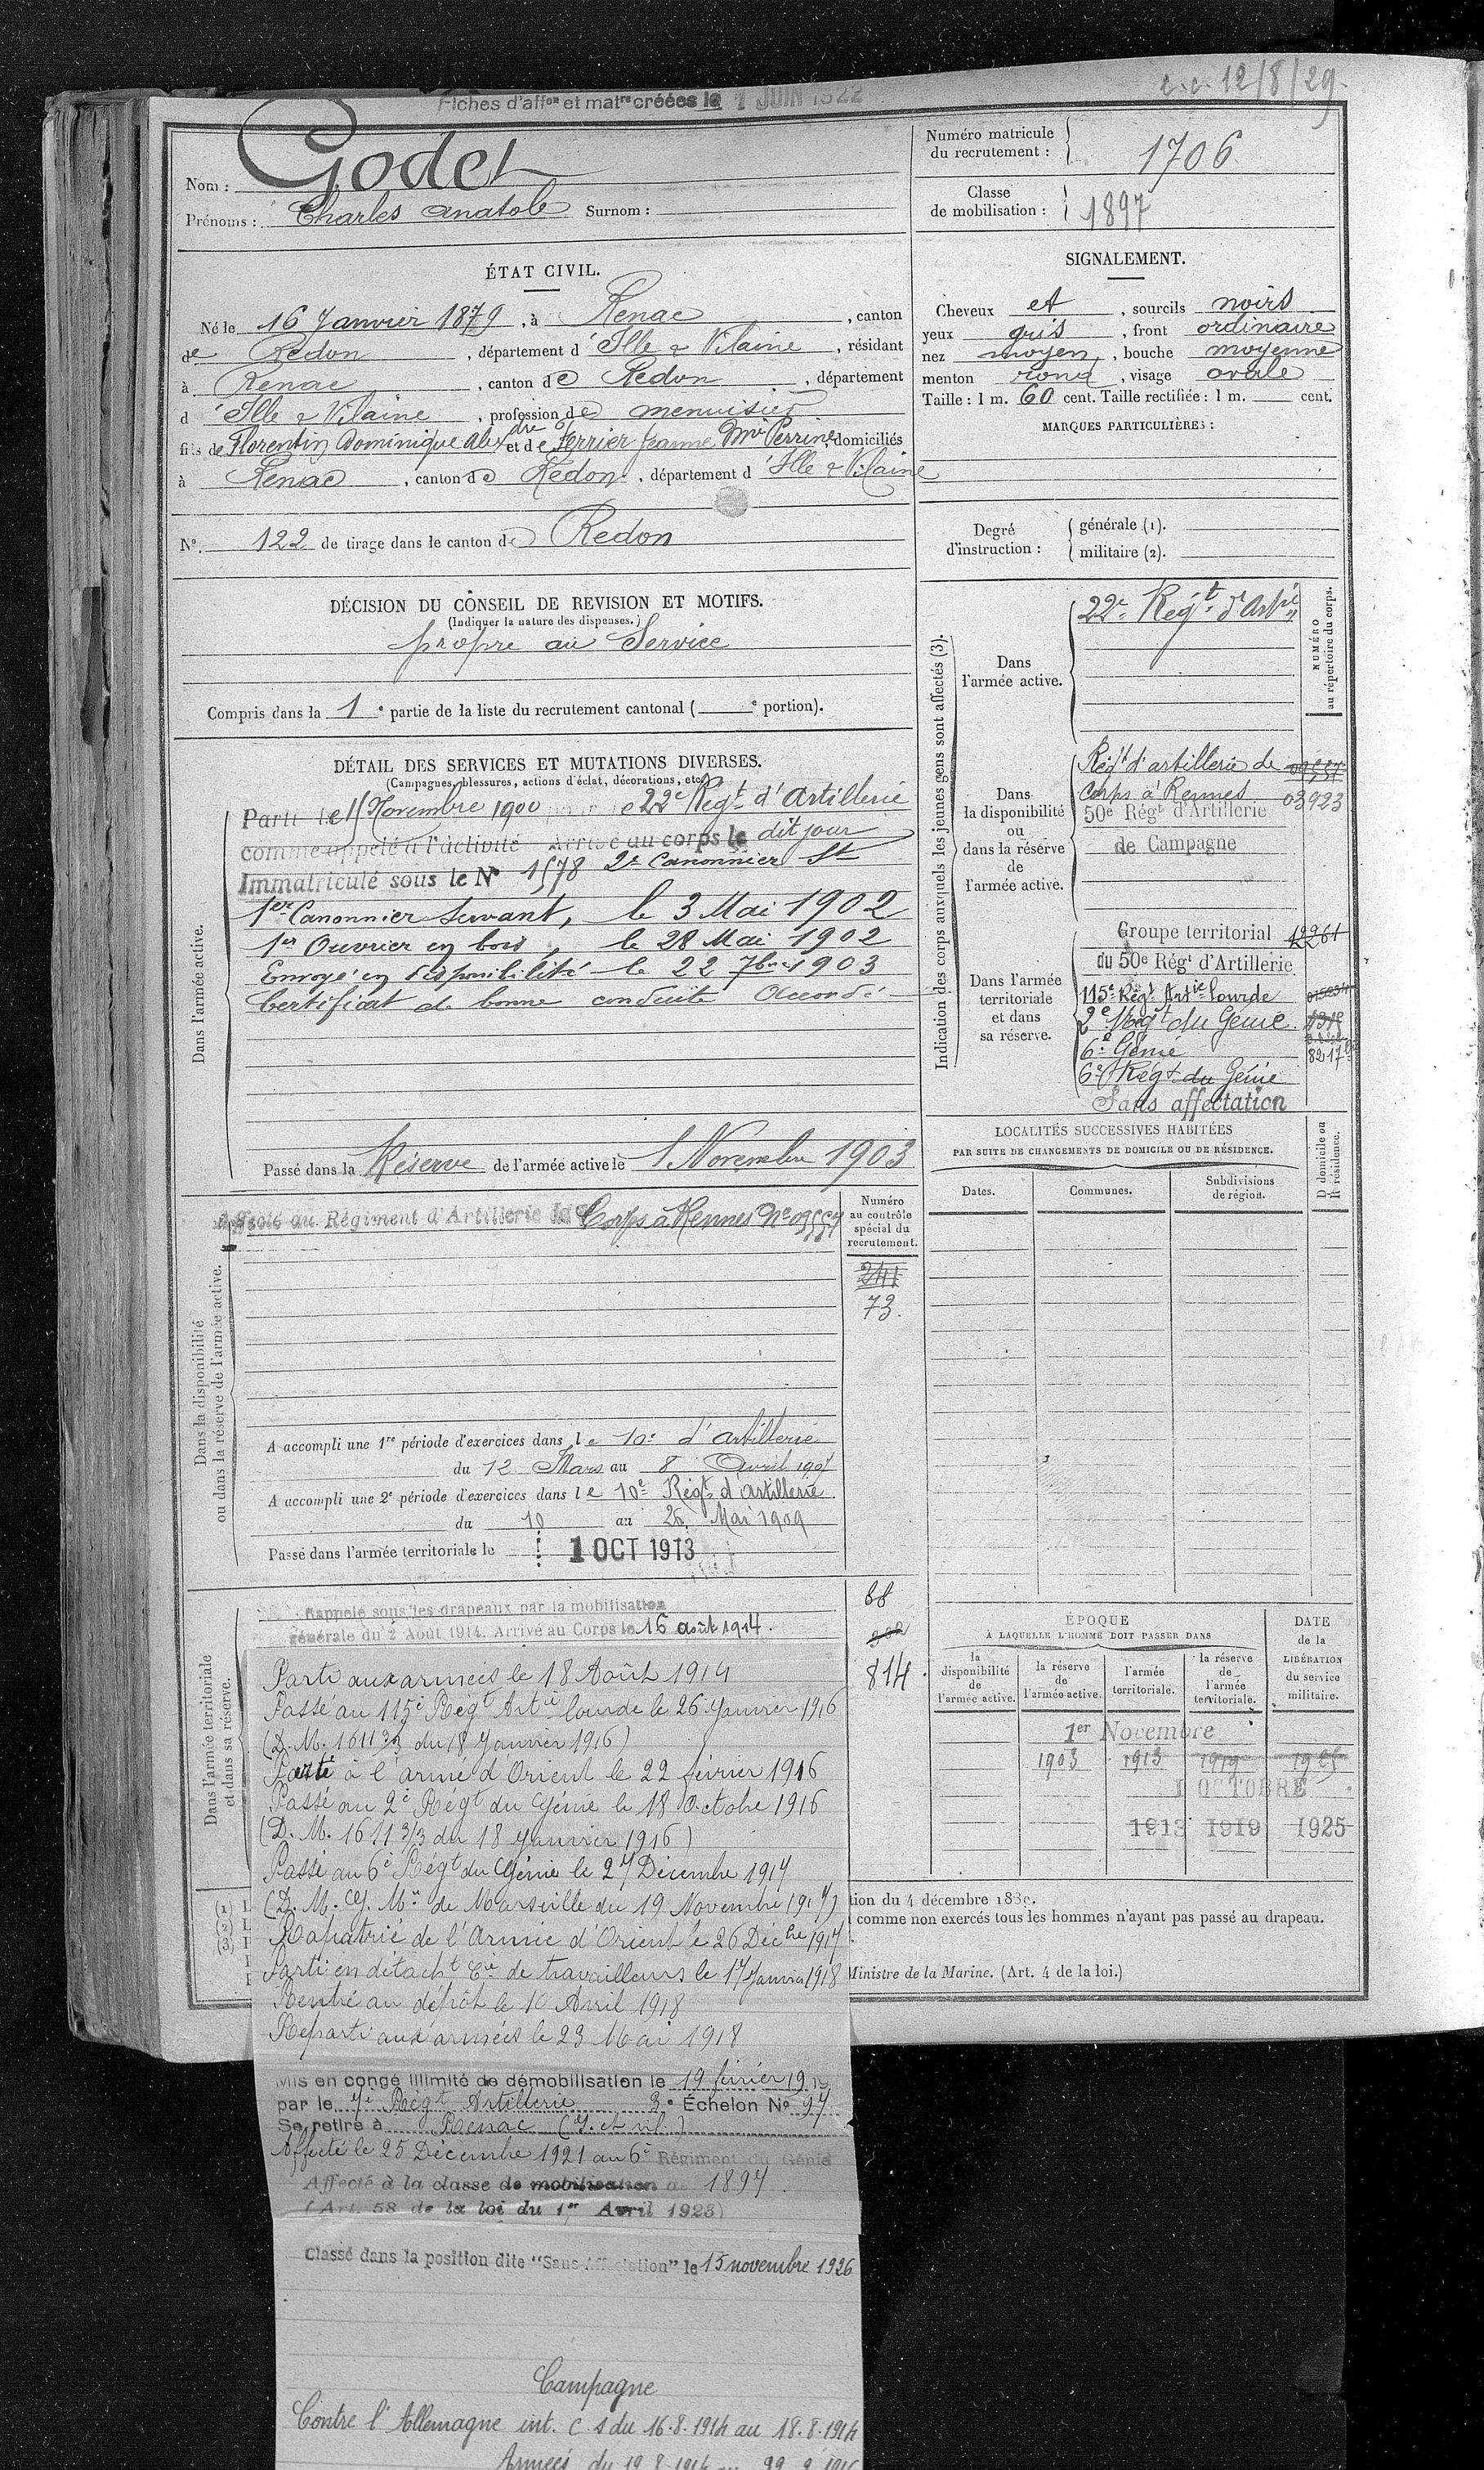 c.c. 12/8/29.
Fiches d'aff.on et mat.re créées le 1 JUIN 1922
Nom : Godet
Prénoms : Charles Anatole Surnom :
Numéro matricule du recrutement : 1706
Classe de mobilisation : 1897
ÉTAT CIVIL.
Né le 16 Janvier 1879, à Renac, canton
de Redon, département d'Ille & Vilaine, résidant
à Renac, canton de Redon, département
d'Ille & Vilaine, profession de menuisier
fils de Florentin Dominique Alexdre et de Ferrier Jeanne Mie Perrine, domiciliés
à Renac, canton de Redon, département d'Ille & Vilaine
N° 122 de tirage dans le canton de Redon
SIGNALEMENT.
Cheveux et, sourcils noirs
yeux gris, front ordinaire
nez moyen, bouche moyenne
menton rond, visage ovale
Taille : 1 m. 60 cent. Taille rectifiée : 1 m. cent.
MARQUES PARTICULIÈRES :
Degré d'instruction :
générale (1).
militaire (2).
DÉCISION DU CONSEIL DE REVISION ET MOTIFS.
(Indiquer la nature des dispenses.)
propre au Service
Compris dans la 1e partie de la liste du recrutement cantonal ( e portion).
DÉTAIL DES SERVICES ET MUTATIONS DIVERSES.
(Campagnes, blessures, actions d'éclat, décorations, etc.)
Dans l'armée active.
Parti le 15 Novembre 1900 22e Régt d'Artillerie
comme appelé à l'activité Arrivé au corps le dit jour
Immatriculé sous le N° 1578 2e Canonnier St
1er Canonnier Servant, le 3 Mai 1902
1er Ouvrier en bois, le 28 Mai 1902
Envoyé en disponibilité le 22 7bre 1903
Certificat de bonne conduite Accordé
Passé dans la Réserve de l'armée active le 1 Novembre 1903
Indication des corps auxquels les jeunes gens sont affectés (3).
NUMÉRO au répertoire du corps.
Dans l'armée active.
22e Régt d'Artie
Dans la disponibilité ou dans la réserve de l'armée active.
Régt d'artillerie de
Corps à Rennes 03923
50e Régt d'Artillerie
de Campagne
Dans l'armée territoriale et dans sa réserve.
Groupe territorial 12261
du 50e Régt d'Artillerie
115e Régt Artie lourde
2e Régt du Génie
6e Génie
6e Régt du Génie
Sans affectation
LOCALITÉS SUCCESSIVES HABITÉES
PAR SUITE DE CHANGEMENTS DE DOMICILE OU DE RÉSIDENCE.
Dates. Communes. Subdivisions de région. D domicile ou R résidence.
Dans la disponibilité ou dans la réserve de l'armée active.
Affecté au Régiment d'Artillerie de Corps à Rennes No 09557
Numéro au contrôle spécial du recrutement.
241
73.
A accompli une 1re période d'exercices dans le 10e d'artillerie
du 12 Mars au 8 Avril 1907
A accompli une 2e période d'exercices dans le 10e Régt d'Artillerie
du 10 au 26 Mai 1909
Passé dans l'armée territoriale le 1 OCT 1913
Dans l'armée territoriale et dans sa réserve.
Rappelé sous les drapeaux par la mobilisation
générale du 2 Août 1914. Arrivé au Corps le 16 août 1914.
88
814
Parti aux armées le 18 Août 1914
Passé au 115e Régt Artie lourde le 26 Janvier 1916
(D.M. 1611 3/3 du 18 Janvier 1916)
Parti à l'armée d'Orient le 22 février 1916
Passé au 2e Régt du Génie le 18 Octobre 1916
(D.M. 1611 3/3 du 18 Janvier 1916)
Passé au 6e Régt du Génie le 27 Décembre 1917
(D.M. Gy. Mre de Marseille du 19 Novembre 1917)
Rapatrié de l'Armée d'Orient le 26 Décbre 1917
Parti en détacht Cie de travailleurs le 17 Janvier 1918
Rentré au dépôt le 10 Avril 1918
Reparti aux armées le 23 Mai 1918
Mis en congé illimité de démobilisation le 19 février 1919
par le 7e Régt Artillerie 3e Échelon N° 97
Se retire à Renac (I. et Vil.)
Affecté le 25 Décembre 1921 au 6e Régiment du Génie
Affecté à la classe de mobilisation de 1897.
(Art. 58 de la loi du 1er Avril 1923)
Classé dans la position dite "Sans Affectation" le 15 novembre 1926
Campagne
Contre l'Allemagne int. C. S du 16.8.1914 au 18.8.1914
Armées du 19.8.1914 au
ÉPOQUE
A LAQUELLE L'HOMME DOIT PASSER DANS
la disponibilité de l'armée active.
la réserve de l'armée active.
l'armée territoriale.
la réserve de l'armée territoriale.
DATE de la LIBÉRATION du service militaire.
1er Novembre
1903 1913 1919 1925
1 OCTOBRE
1913 1919 1925
tion du 4 décembre 1889.
comme non exercés tous les hommes n'ayant pas passé au drapeau.
Ministre de la Marine. (Art. 4 de la loi.)